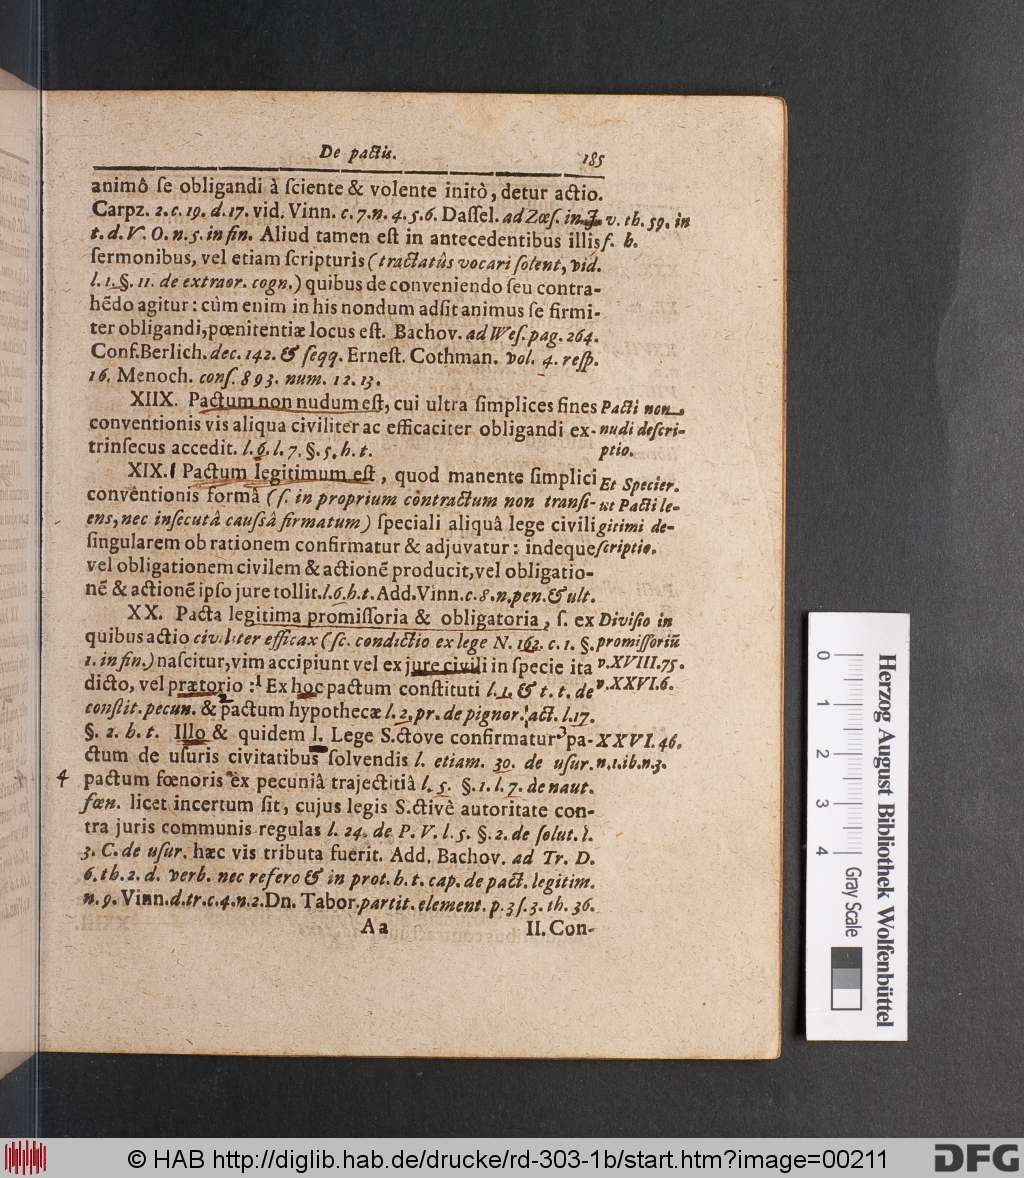 De pactis. 185
animô ſe obligandi à ſciente & volente initò, detur actio.
Carpz. 2. c. 19. d. 17. vid. Vinn. c. 7. n. 4. 5. 6. Daſſel. ad Zœſ. in J. v. th. 59. in
t. d. V. O. n. 5. in fin. Aliud tamen eſt in antecedentibus illis ſ. b.
ſermonibus, vel etiam ſcripturis (tractatûs vocari ſolent, vid.
l. 1. §. 11. de extraor. cogn.) quibus de conveniendo ſeu contra-
hēdo agitur: cùm enim in his nondum adſit animus ſe firmi-
ter obligandi, pœnitentiæ locus eſt. Bachov. ad Weſ. pag. 264.
Conf. Berlich. dec. 142. & ſeqq. Erneſt. Cothman. vol. 4. reſp.
16. Menoch. conſ. 893. num. 12. 13.
XIIX. Pactum non nudum eſt, cui ultra ſimplices fines
conventionis vis aliqua civiliter ac efficaciter obligandi ex-
trinſecus accedit. l. 6. l. 7. §. 5. h. t.
Pacti non
nudi deſcri-
ptio.
XIX. Pactum legitimum eſt, quod manente ſimplici
conventionis formâ (ſ. in proprium contractum non tranſi-
ens, nec inſecutâ cauſsâ firmatum) ſpeciali aliquâ lege civili
ſingularem ob rationem confirmatur & adjuvatur: indeque
vel obligationem civilem & actionē producit, vel obligatio-
nē & actionē ipſo jure tollit. l. 6. h. t. Add. Vinn. c. 8. n. pen. & ult.
Et Specier.
ut Pacti le-
gitimi de-
ſcriptio.
XX. Pacta legitima promiſſoria & obligatoria, ſ. ex
quibus actio civiliter efficax (ſc. condictio ex lege N. 162. c. 1. §.
1. in fin.) naſcitur, vim accipiunt vel ex jure civili in ſpecie ita
dicto, vel prætorio: Ex hoc pactum conſtituti l. 1. & t. t. de
conſtit. pecun. & pactum hypothecæ l. 2. pr. de pignor. act. l. 17.
§. 2. h. t. Illo & quidem I. Lege S.ctove confirmatur pa-
ctum de uſuris civitatibus ſolvendis l. etiam. 30. de uſur.
4 pactum fœnoris ex pecuniâ trajectitiâ l. 5. §. 1. l. 7. de naut.
fœn. licet incertum ſit, cujus legis S.ctivè autoritate con-
tra juris communis regulas l. 24. de P. V. l. 5. §. 2. de ſolut. l.
3. C. de uſur. hæc vis tributa fuerit. Add. Bachov. ad Tr. D.
6. th. 2. d. verb. nec refero & in prot. h. t. cap. de pact. legitim.
n. 9. Vinn. d. tr. c. 4. n. 2. Dn. Tabor. partit. element. p. 3 ſ. 3. th. 36.
Diviſio in
promiſſoriū
v. XVIII. 75.
v. XXVI. 6.
XXVI. 46.
n. 1. ib. n. 3.
Aa II. Con-
Herzog August Bibliothek Wolfenbüttel
Gray Scale
0 1 2 3 4
© HAB http://diglib.hab.de/drucke/rd-303-1b/start.htm?image=00211
DFG